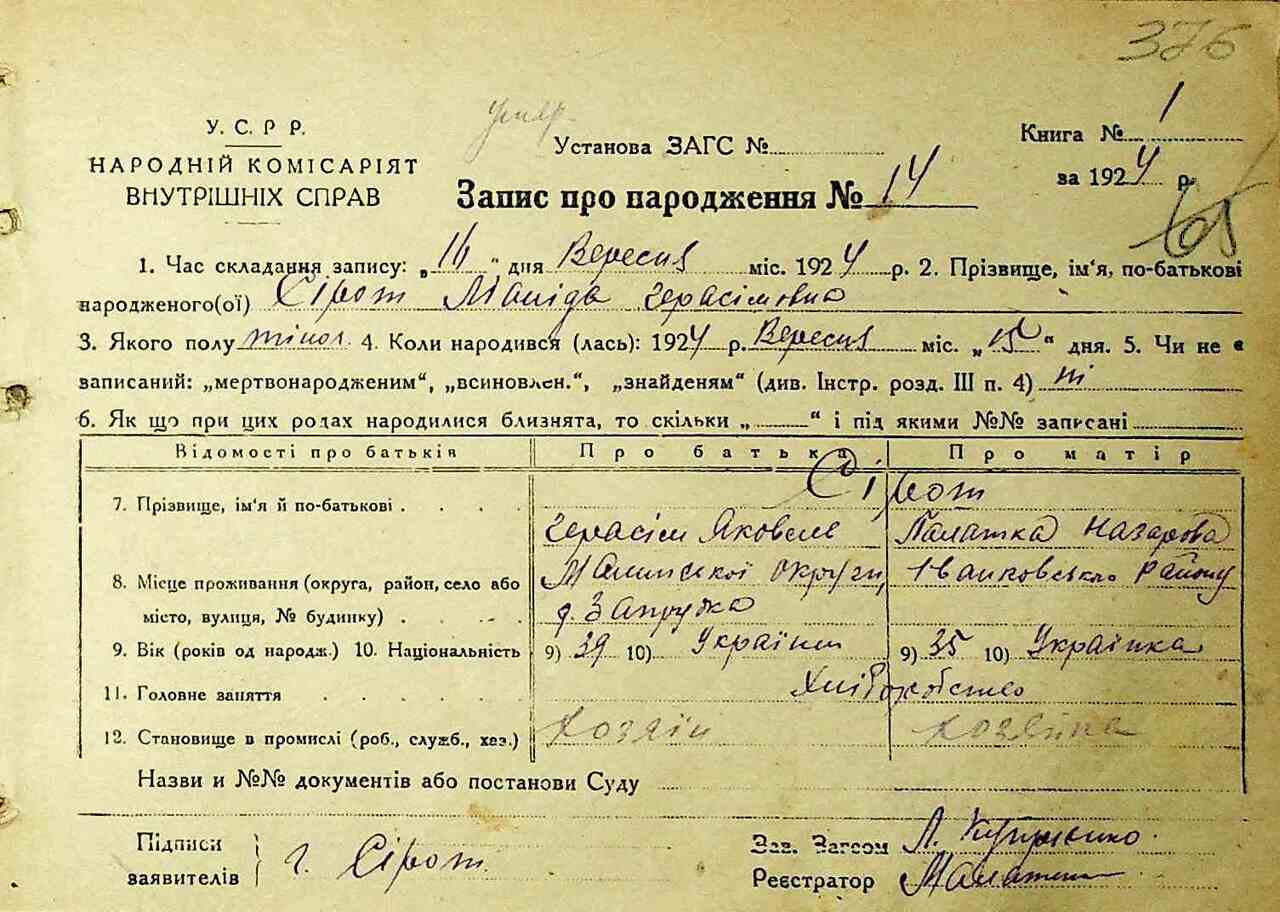 376
У. С. Р Р.
НАРОДНІЙ КОМІСАРІЯТ
ВНУТРІШНІХ СПРАВ
Установа ЗАГС №
Книга № 1
за 1924 р.
Запис про народження № 14
1. Час складання запису: „16“ дня Вересня міс. 1924 р. 2. Прізвище, ім'я, по-батькові
народженого(ої) Сірот Герасімовна
3. Якого полу жіноч. 4. Коли народився (лась): 1924 р. Вересня міс. „15“ дня. 5. Чи не є
записаний: „мертвонародженим“, „всиновлен.“, „знайденям“ (див. Інстр. розд. III п. 4) ні
6. Як що при цих родах народилися близнята, то скільки „ “ і під якими №№ записані
Відомості про батьків Про батька Про матір
7. Прізвище, ім'я й по-батькові . . . . Сірот
Герасім Яковлев Палашка Назарова
8. Місце проживання (округа, район, село або Малинської округи Іванковського району
місто, вулиця, № будинку) . . . . д. Запрудка
9. Вік (років од народж.) 10. Національність 9) 39 10) Українец 9) 35 10) Українка
11. Головне заняття . . . . Хліборобство
12. Становище в промислі (роб., служб., хаз.) Хозяін Хозяйка
Назви и №№ документів або постанови Суду
Підписи
заявителів
Г. Сірот
Зав. Загсом Л.
Реєстратор